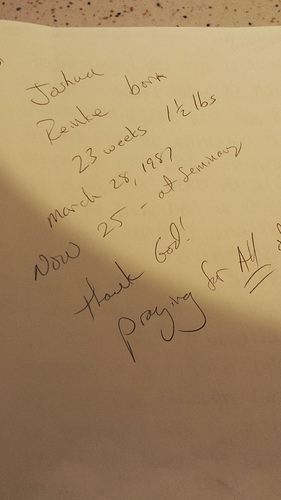 Joshua
Reinke born
23 weeks 1½ lbs
March 28, 1987
Now 25 - at Seminary
Thank God!
Praying for All